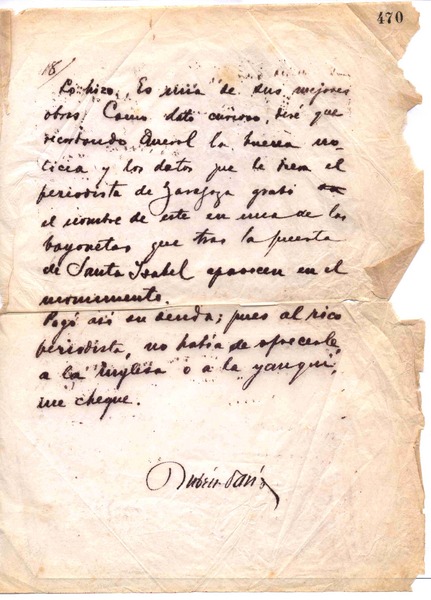 470
18/
Lo hizo. Es una de sus mejores
obras. Como dato curioso, diré que
recordando Querol la buena no-
ticia y los datos que le diera el
periodista de Zaragoza grabó
el nombre de este en una de las
bayonetas que tras la puerta
de Santa Isabel aparecen en el
monumento.
Pagó así su deuda; pues al rico
periodista, no había de ofrecerle,
a la inglesa o a la yanqui,
un cheque.
Rubén Darío